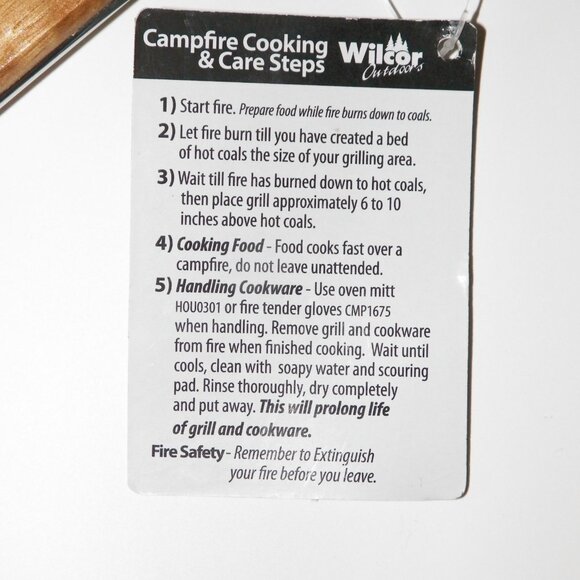 Campfire Cooking
& Care Steps
Wilcor
Outdoors
1) Start fire. Prepare food while fire burns down to coals.
2) Let fire burn till you have created a bed
of hot coals the size of your grilling area.
3) Wait till fire has burned down to hot coals,
then place grill approximately 6 to 10
inches above hot coals.
4) Cooking Food - Food cooks fast over a
campfire, do not leave unattended.
5) Handling Cookware - Use oven mitt
HOU0301 or fire tender gloves CMP1675
when handling. Remove grill and cookware
from fire when finished cooking. Wait until
cools, clean with soapy water and scouring
pad. Rinse thoroughly, dry completely
and put away. This will prolong life
of grill and cookware.
Fire Safety - Remember to Extinguish
your fire before you leave.